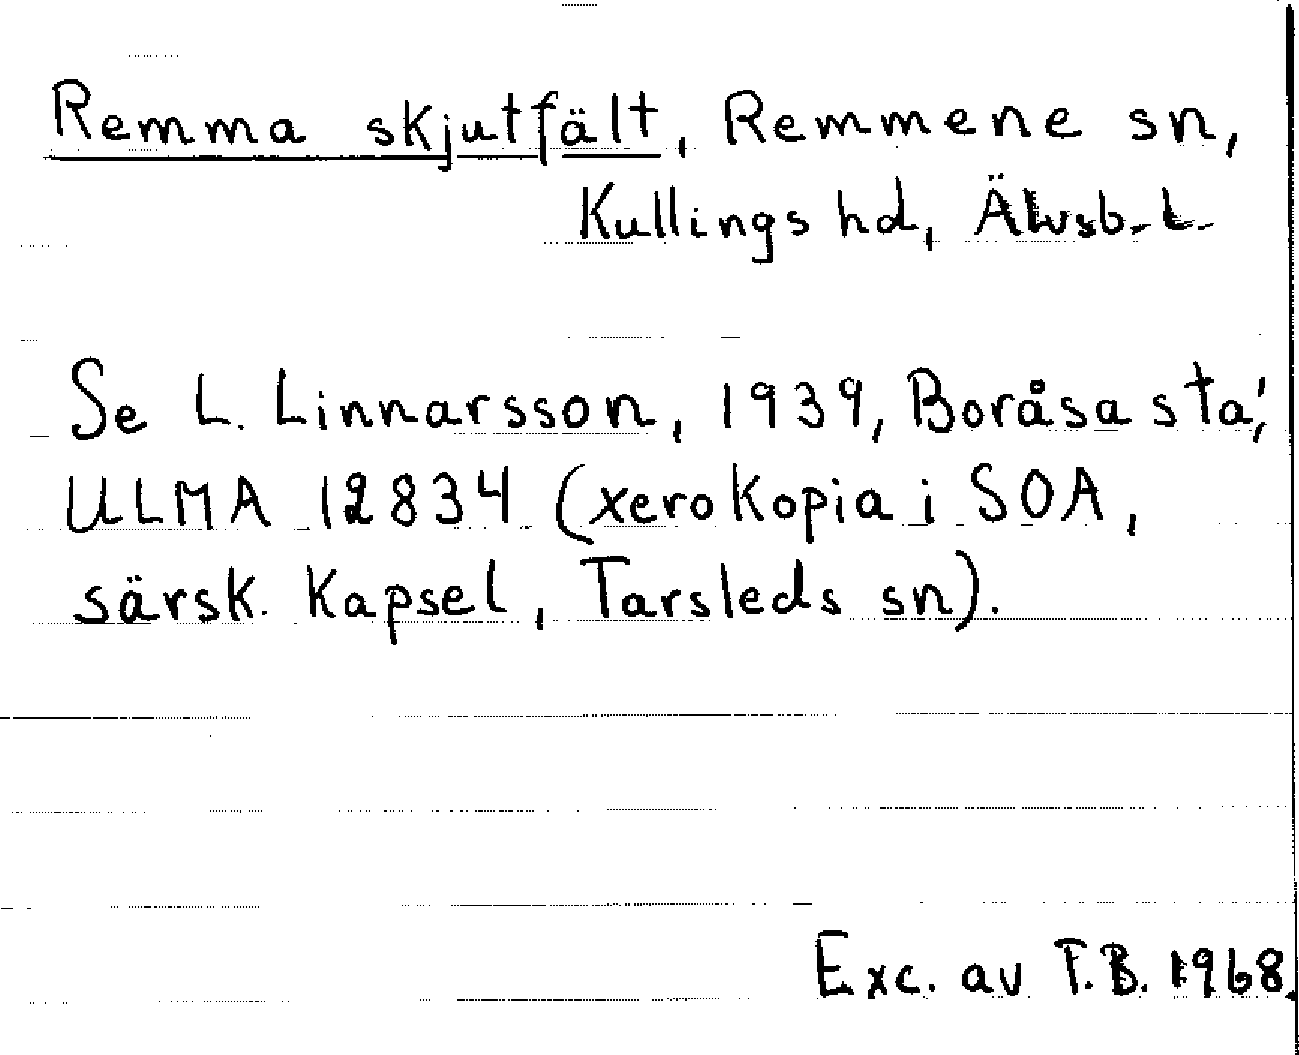 Remma skjutfält, Remmene sn,
Kullings hd, Älvsb. l.
Se L. Linnarsson, 1939, Boråsasta,
ULMA 12834 (xerokopia i SOA,
särsk. kapsel, Tarsleds sn).
Exc. av T.B. 1968.